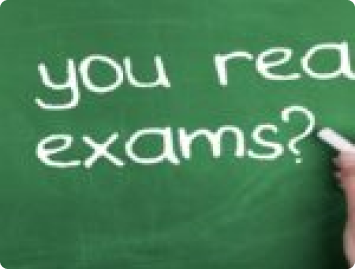 you rea
exams?